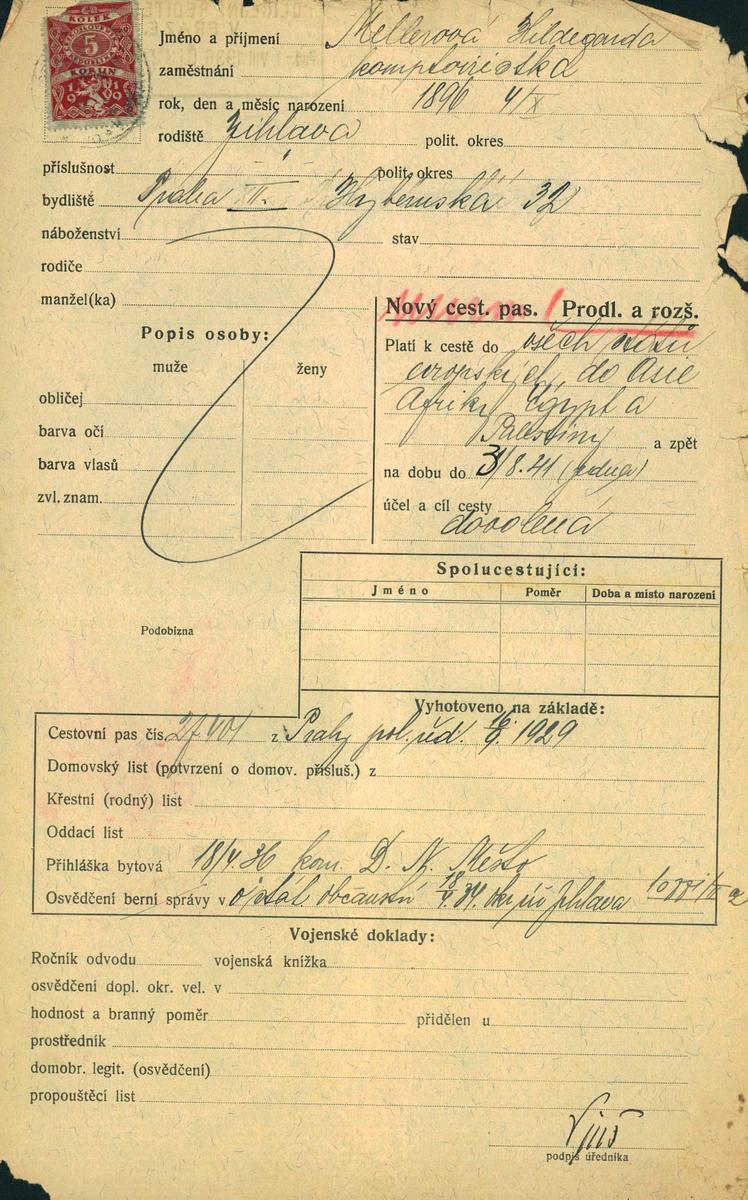 KOLEK
5
KORUN
Jméno a příjmení Mellerová Hildegarda
zaměstnání komptoiristka
rok, den a měsíc narození 1896 4/X
rodiště Jihlava polit. okres
příslušnost polit. okres
bydliště Praha II. Hybernská 32
náboženství stav
rodiče
manžel(ka)
Popis osoby:
muže ženy
obličej
barva očí
barva vlasů
zvl. znam.
Nový cest. pas. Prodl. a rozš.
Platí k cestě do všech států
evropských do Asie
Afriky Egypt a
Palestiny a zpět
na dobu do 31/8.41
účel a cíl cesty
dovolená
Spolucestující:
Jméno Poměr Doba a místo narození
Podobizna
Vyhotoveno na základě:
Cestovní pas čís. 27401 z Prahy pol. řed. 1929
Domovský list (potvrzení o domov. přísluš.) z
Křestní (rodný) list
Oddací list
Přihláška bytová 18/4.36 kom. D. N. Město
Osvědčení berní správy v o stát. občanství 18/4.34. okr. úř. Jihlava
Vojenské doklady:
Ročník odvodu vojenská knížka
osvědčení dopl. okr. vel. v
hodnost a branný poměr přidělen u
prostředník
domobr. legit. (osvědčení)
propouštěcí list
podpis úředníka